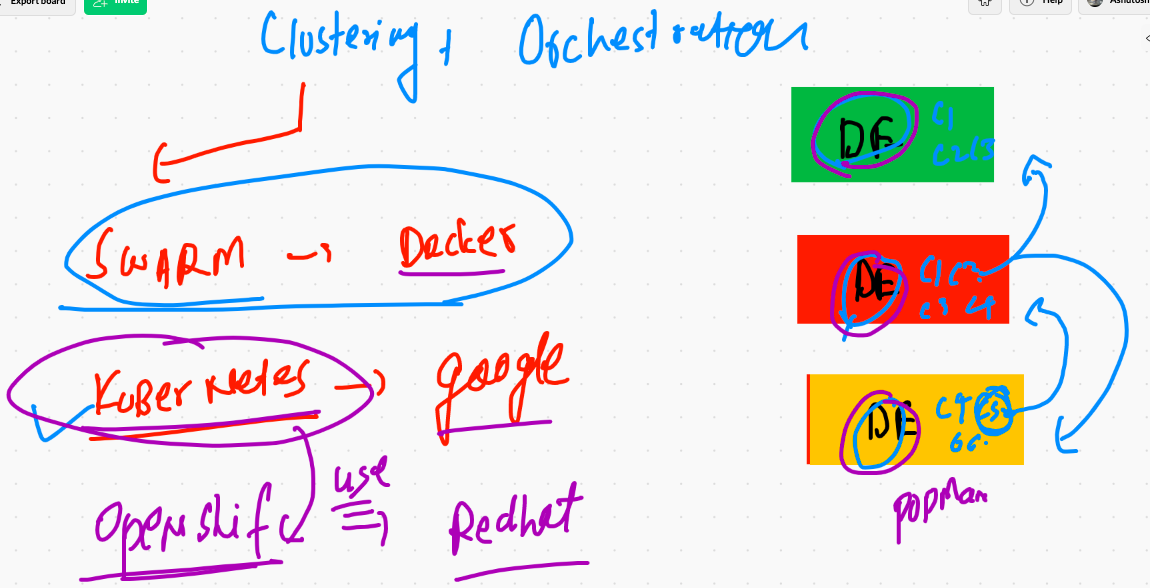 Export board
Invite
Help
Ashutosh
Clustering, Orchestration
SWARM → Docker
Kubernetes → google
Openshift use Redhat
DE C1
C2 C3
DE C1 C2
C3 C4
DE C4 C5
C6
popman